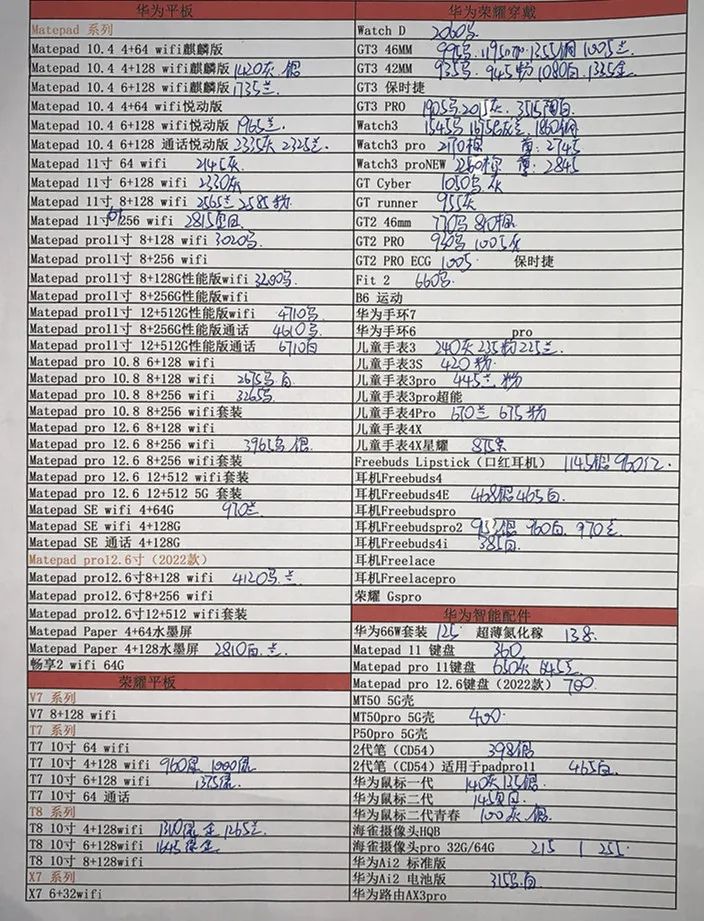 华为平板
Matepad 系列
Matepad 10.4 4+64 wifi麒麟版
Matepad 10.4 4+128 wifi麒麟版 1420灰 银
Matepad 10.4 6+128 wifi麒麟版 1735兰.
Matepad 10.4 4+64 wifi悦动版
Matepad 10.4 6+128 wifi悦动版 1965兰.
Matepad 10.4 6+128 通话悦动版 2335灰 2325兰.
Matepad 11寸 64 wifi 2145灰
Matepad 11寸 6+128 wifi 2330灰
Matepad 11寸 8+128 wifi 2565兰 2585粉
Matepad 11寸 256 wifi 2815
Matepad pro11寸 8+128 wifi 3020
Matepad pro11寸 8+256 wifi
Matepad pro11寸 8+128G性能版wifi 3200
Matepad pro11寸 8+256G性能版wifi
Matepad pro11寸 12+512G性能版wifi 4710
Matepad pro11寸 8+256G性能版通话 4610
Matepad pro11寸 12+512G性能版通话 6710白
Matepad pro 10.8 6+128 wifi
Matepad pro 10.8 8+128 wifi 2675 白
Matepad pro 10.8 8+256 wifi 3265
Matepad pro 10.8 8+256 wifi套装
Matepad pro 12.6 8+128 wifi
Matepad pro 12.6 8+256 wifi 3965 银.
Matepad pro 12.6 8+256 wifi套装
Matepad pro 12.6 12+512 wifi套装
Matepad pro 12.6 12+512 5G 套装
Matepad SE wifi 4+64G 970兰.
Matepad SE wifi 4+128G
Matepad SE 通话 4+128G
Matepad pro12.6寸（2022款）
Matepad pro12.6寸8+128 wifi 4120 兰.
Matepad pro12.6寸8+256 wifi
Matepad pro12.6寸12+512 wifi套装
Matepad Paper 4+64水墨屏
Matepad Paper 4+128水墨屏 2810白.兰.
畅享2 wifi 64G
荣耀平板
V7 系列
V7 8+128 wifi
T7 系列
T7 10寸 64 wifi
T7 10寸 4+128 wifi 960 1000
T7 10寸 6+128 wifi 1375
T7 10寸 64 通话
T8 系列
T8 10寸 4+128wifi 1310 金 1265兰.
T8 10寸 6+128wifi 1445 金
T8 10寸 8+128wifi
X7 系列
X7 6+32wifi
华为荣耀穿戴
Watch D 2060
GT3 46MM 995 1195 1355钢 1005兰
GT3 42MM 935 945粉 1080白 1335金
GT3 保时捷
GT3 PRO 1905 2015灰. 3515陶白
Watch3 1545 1675 1860钢
Watch3 pro 2170棕 尊: 2745
Watch3 proNEW 2260棕 尊: 2845
GT Cyber 1050 灰
GT runner 955灰
GT2 46mm 770 810棕
GT2 PRO 930 1005灰
GT2 PRO ECG 1005 保时捷
Fit 2 660
B6 运动
华为手环7
华为手环6 pro
儿童手表3 240灰 235粉 225兰.
儿童手表3S 420粉
儿童手表3pro 445兰 粉
儿童手表3pro超能
儿童手表4Pro 670兰 675粉
儿童手表4X
儿童手表4X星耀 875
Freebuds Lipstick（口红耳机） 1145银 960红.
耳机Freebuds4
耳机Freebuds4E 468银 465白.
耳机Freebudspro
耳机Freebudspro2 银 960白. 970兰.
耳机Freebuds4i 385白
耳机Freelace
耳机Freelacepro
荣耀 Gspro
华为智能配件
华为66W套装 125 超薄氮化稼 138.
Matepad 11 键盘 360
Matepad pro 11键盘 650灰 645兰
Matepad pro 12.6键盘（2022款） 700
MT50 5G壳
MT50pro 5G壳 400
P50pro 5G壳
2代笔（CD54） 398银
2代笔（CD54）适用于padpro11 465白.
华为鼠标一代 140灰 135银
华为鼠标二代 145
华为鼠标二代青春 100灰 银
海雀摄像头HQB
海雀摄像头pro 32G/64G 215 | 255
华为Ai2 标准版
华为Ai2 电池版 315 白
华为路由AX3pro